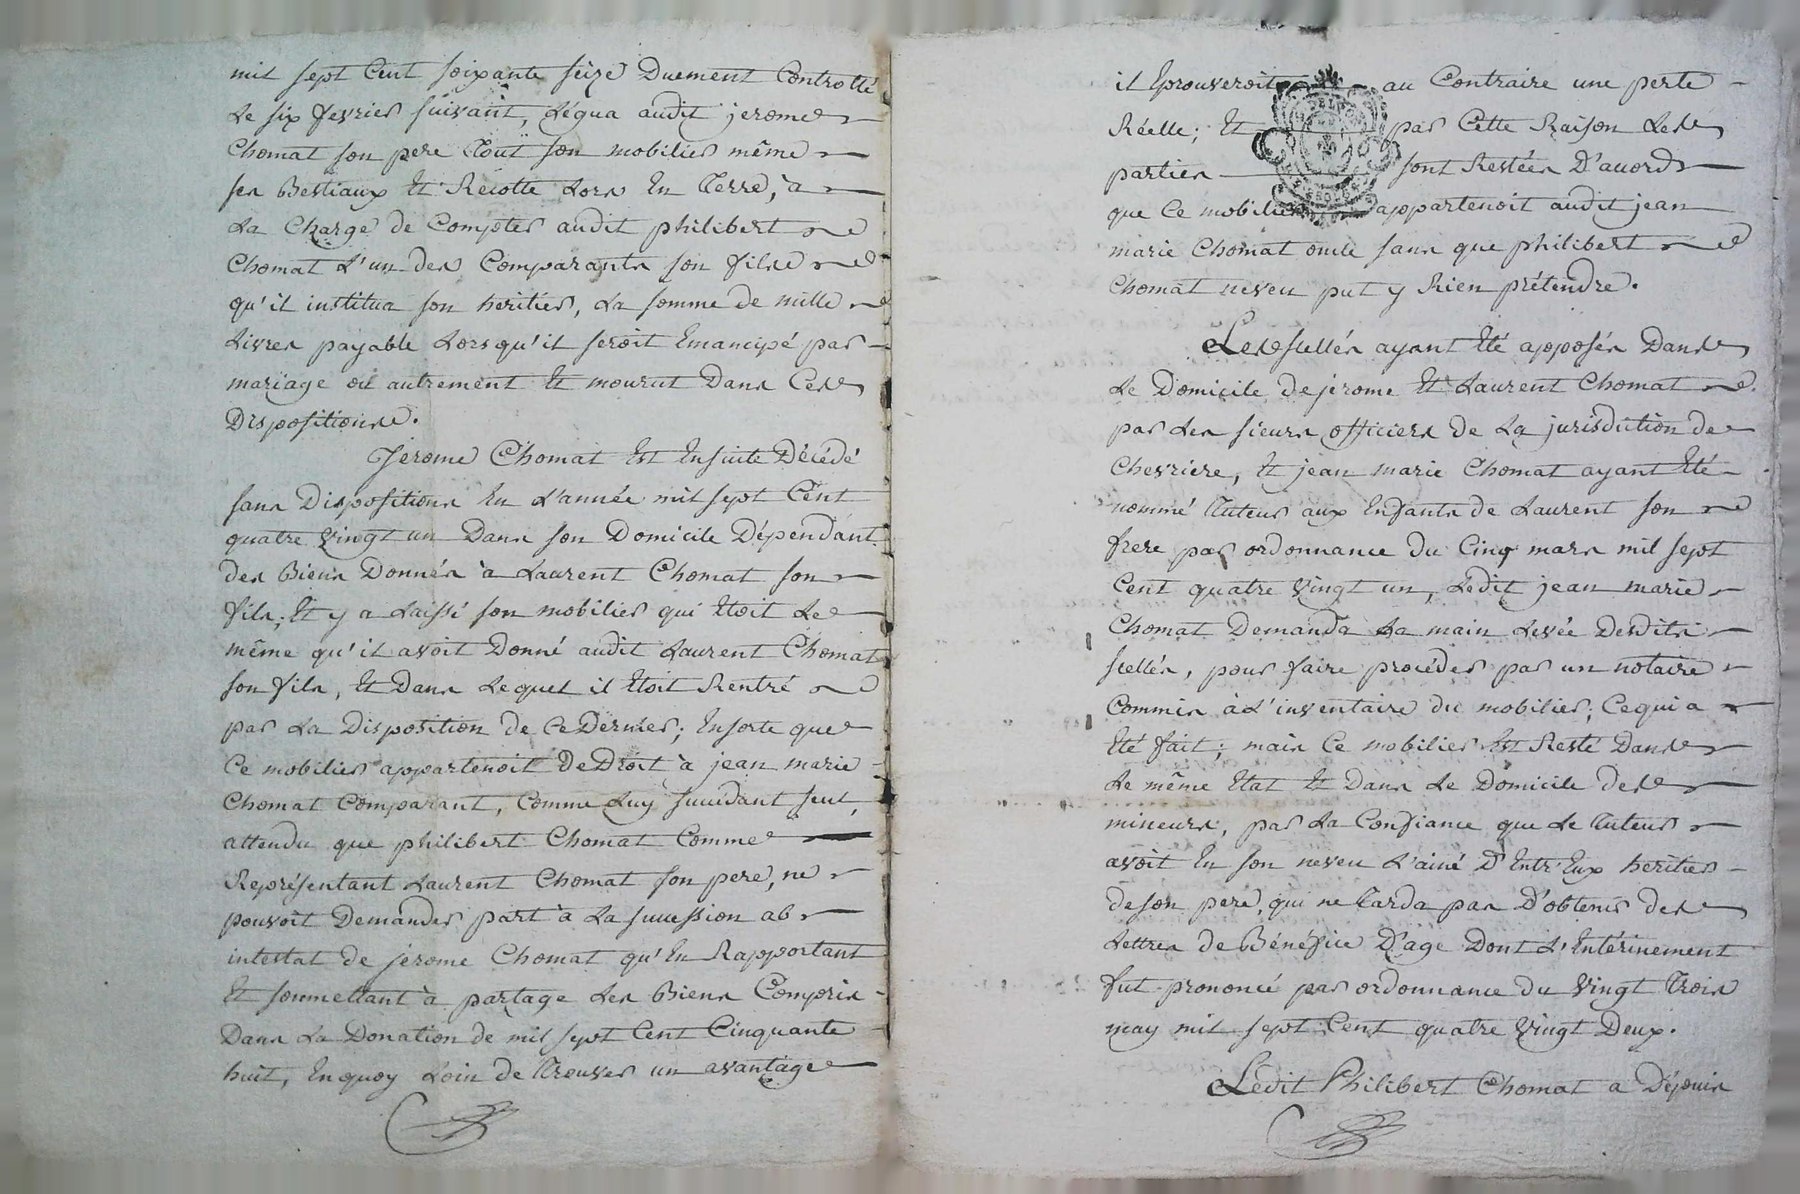 mil sept Cent soixante seize Duement Controllé
Le six fevrier suivant, Légua audit jerome
Chomat son pere Tout son mobilier même
ses Bestiaux Et Récolte Lors En Terre, à
La Charge de Compter audit philibert
Chomat L'un des Comparants son fils
qu'il institua son heritier, La somme de mille
Livres payable Lorsqu'il seroit Emancipé par
mariage ou autrement Et mourut Dans Ces
Dispositions.
Jérome Chomat Est Ensuite Décédé
sans Dispositions En L'année mil sept Cent
quatre vingt un Dans son Domicile Dépendant
des Biens Donnés à Laurent Chomat son
fils; Et y a Laissé son mobilier qui Etoit Le
même qu'il avoit Donné audit Laurent Chomat
son fils, Et Dans Lequel il Etoit Rentré
par La Disposition de Ce Dernier; Ensorte que
Ce mobilier appartenoit De Droit à jean marie
Chomat Comparant, Comme Luy succédant seul,
attendu que philibert Chomat Comme
Représentant Laurent Chomat son pere, ne
pouvoit Demander part à La succession ab
intestat de jérome Chomat qu'En Rapportant
Et soumettant à partage Les Biens Compris
Dans La Donation de mil sept Cent Cinquante
huit, En quoy Loin de Trouver un avantage
il Eprouveroit au Contraire une perte
Réelle; Et par Cette Raison Les
parties sont Restées D'accord
que Ce mobilier appartenoit audit jean
marie Chomat oncle sans que philibert
Chomat neveu put y Rien prétendre.
Les scellés ayant Eté apposés Dans
Le Domicile de jérome Et Laurent Chomat
par Les sieurs officiers de La jurisdiction de
Chevriere, Et jean marie Chomat ayant Eté
nommé Tuteur aux Enfants de Laurent son
frere par ordonnance du Cinq mars mil sept
Cent quatre vingt un, Ledit jean marie
Chomat Demanda La main Levée Desdits
scellés, pour faire procéder par un notaire
Commis à L'inventaire du mobilier; Ce qui a
Eté fait; mais Ce mobilier Est Resté Dans
Le même Etat Et Dans Le Domicile des
mineurs, par La Confiance que Le Tuteur
avoit En son neveu L'ainé D'Entr'Eux heritier
de son pere, qui ne Tarda pas D'obtenir des
Lettres de Bénéfice D'age Dont L'Entérinement
fut prononcé par ordonnance du vingt Trois
may mil sept Cent quatre vingt Deux.
Ledit Philibert Chomat a Depuis